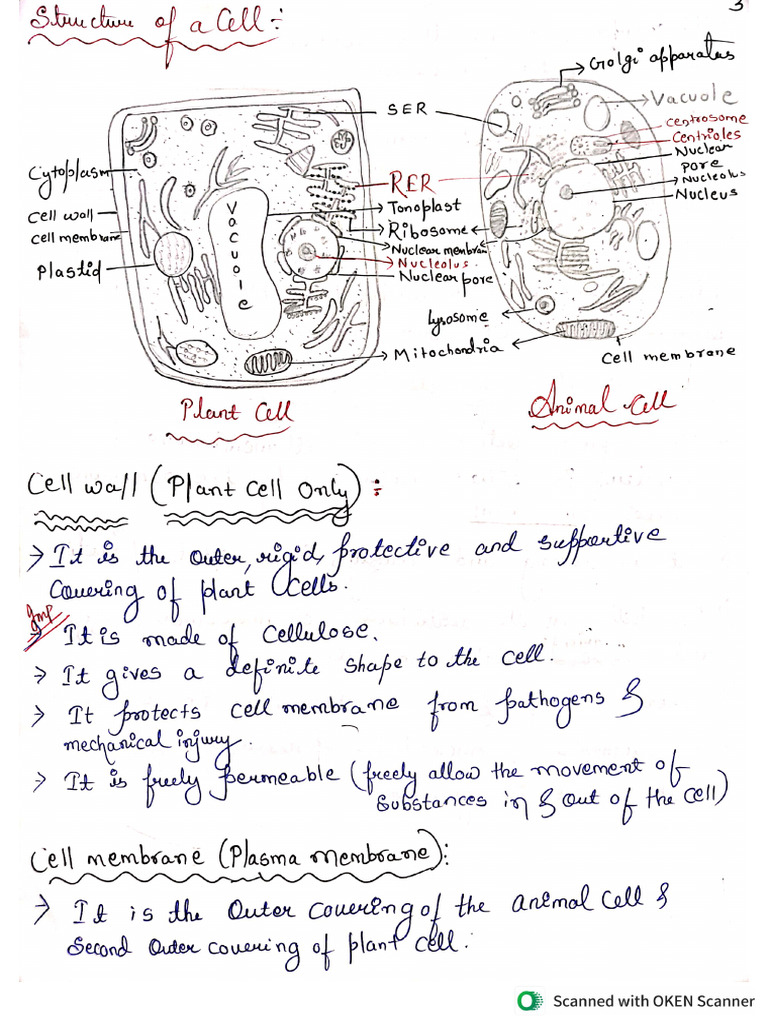 3
Structure of a Cell :-
Golgi apparatus
SER
Vacuole
Centrosome
Centrioles
Nuclear
pore
Nucleolus
Nucleus
Cytoplasm
RER
Tonoplast
Cell wall
Cell membrane
Ribosome
Nuclear membran
Plastid
Vacuole
Nucleolus
Nuclear pore
Lysosome
Mitochondria
Cell membrane
Plant Cell
Animal Cell
Cell wall (Plant Cell Only) :
→ It is the outer, rigid, protective and supportive
Covering of plant Cells.
Imp
→ It is made of Cellulose.
→ It gives a definite shape to the cell.
→ It protects cell membrane from pathogens &
mechanical injury.
→ It is freely permeable (freely allow the movement of
Substances in & Out of the cell)
Cell membrane (Plasma Membrane):
→ It is the Outer Covering of the animal Cell &
Second Outer covering of plant Cell.
Scanned with OKEN Scanner